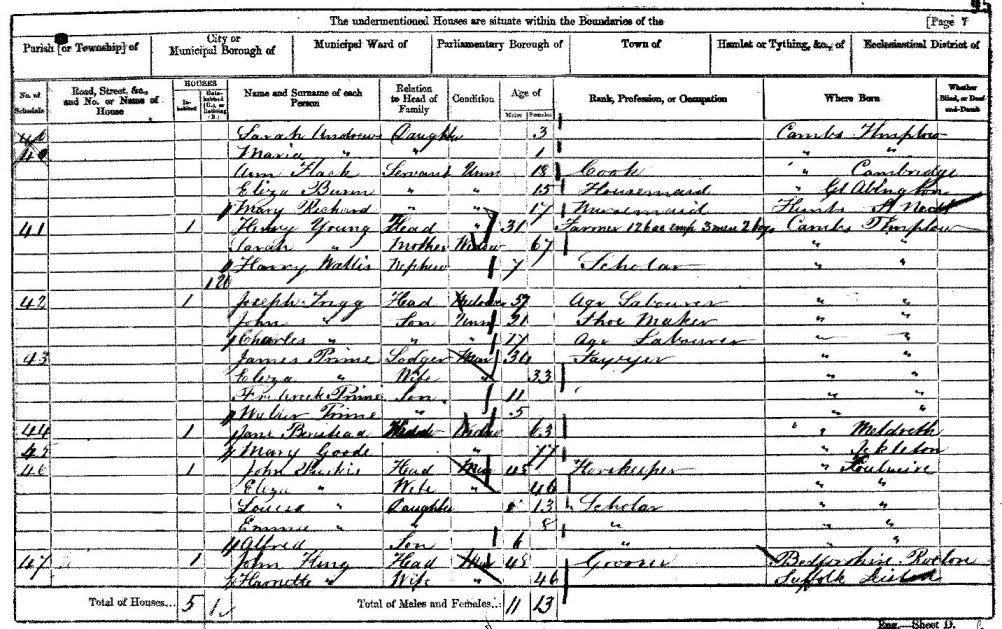 95
The undermentioned Houses are situate within the Boundaries of the
[Page 7
Parish [or Township] of City or Municipal Borough of Municipal Ward of Parliamentary Borough of Town of Hamlet or Tything, &c., of Ecclesiastical District of
No. of Schedule Road, Street, &c., and No. or Name of House HOUSES Inhabited Uninhabited (U.), or Building (B.) Name and Surname of each Person Relation to Head of Family Condition Age of Males Females Rank, Profession, or Occupation Where Born Whether Blind, or Deaf-and-Dumb
Sarah Andrews Daughter 3 Cambs Thriplow
40 Maria " " 1 " "
Ann Flack Servant Unm 18 Cook " Cambridge
Eliza " " 15 Housemaid " Gt Abington
Mary " " 17 Nursemaid Hunts St Neots
41 1 Henry Young Head " 31 Farmer 126 ac emp 3 men 2 boys Cambs Thriplow
Sarah " Mother Widow 67 " "
Harry Wallis Nephew 7 Scholar " "
42 1 Joseph Trigg Head Widower 57 Agr Labourer " "
John " Son Unm 21 Shoe Maker " "
Charles " " " 17 Agr Labourer " "
43 James Prime Lodger Mar 30 " "
Eliza " Wife " 33 " "
Frederick Prime Son 11 " "
Walter Prime " 5 " "
44 1 Jane Head Widow 63 " Meldreth
45 Mary Goode 77 " Ickleton
46 1 John Head Mar 45 Horsekeeper "
Eliza " Wife " 46 " "
Louisa " Daughter 13 Scholar " "
Emma " " 8 " " "
Alfred Son 6 " " "
47 1 John King Head Mar 48 Bedfordshire
" Wife " 46 Suffolk
Total of Houses... 5 1 Total of Males and Females... 11 13
Eng.—Sheet D.